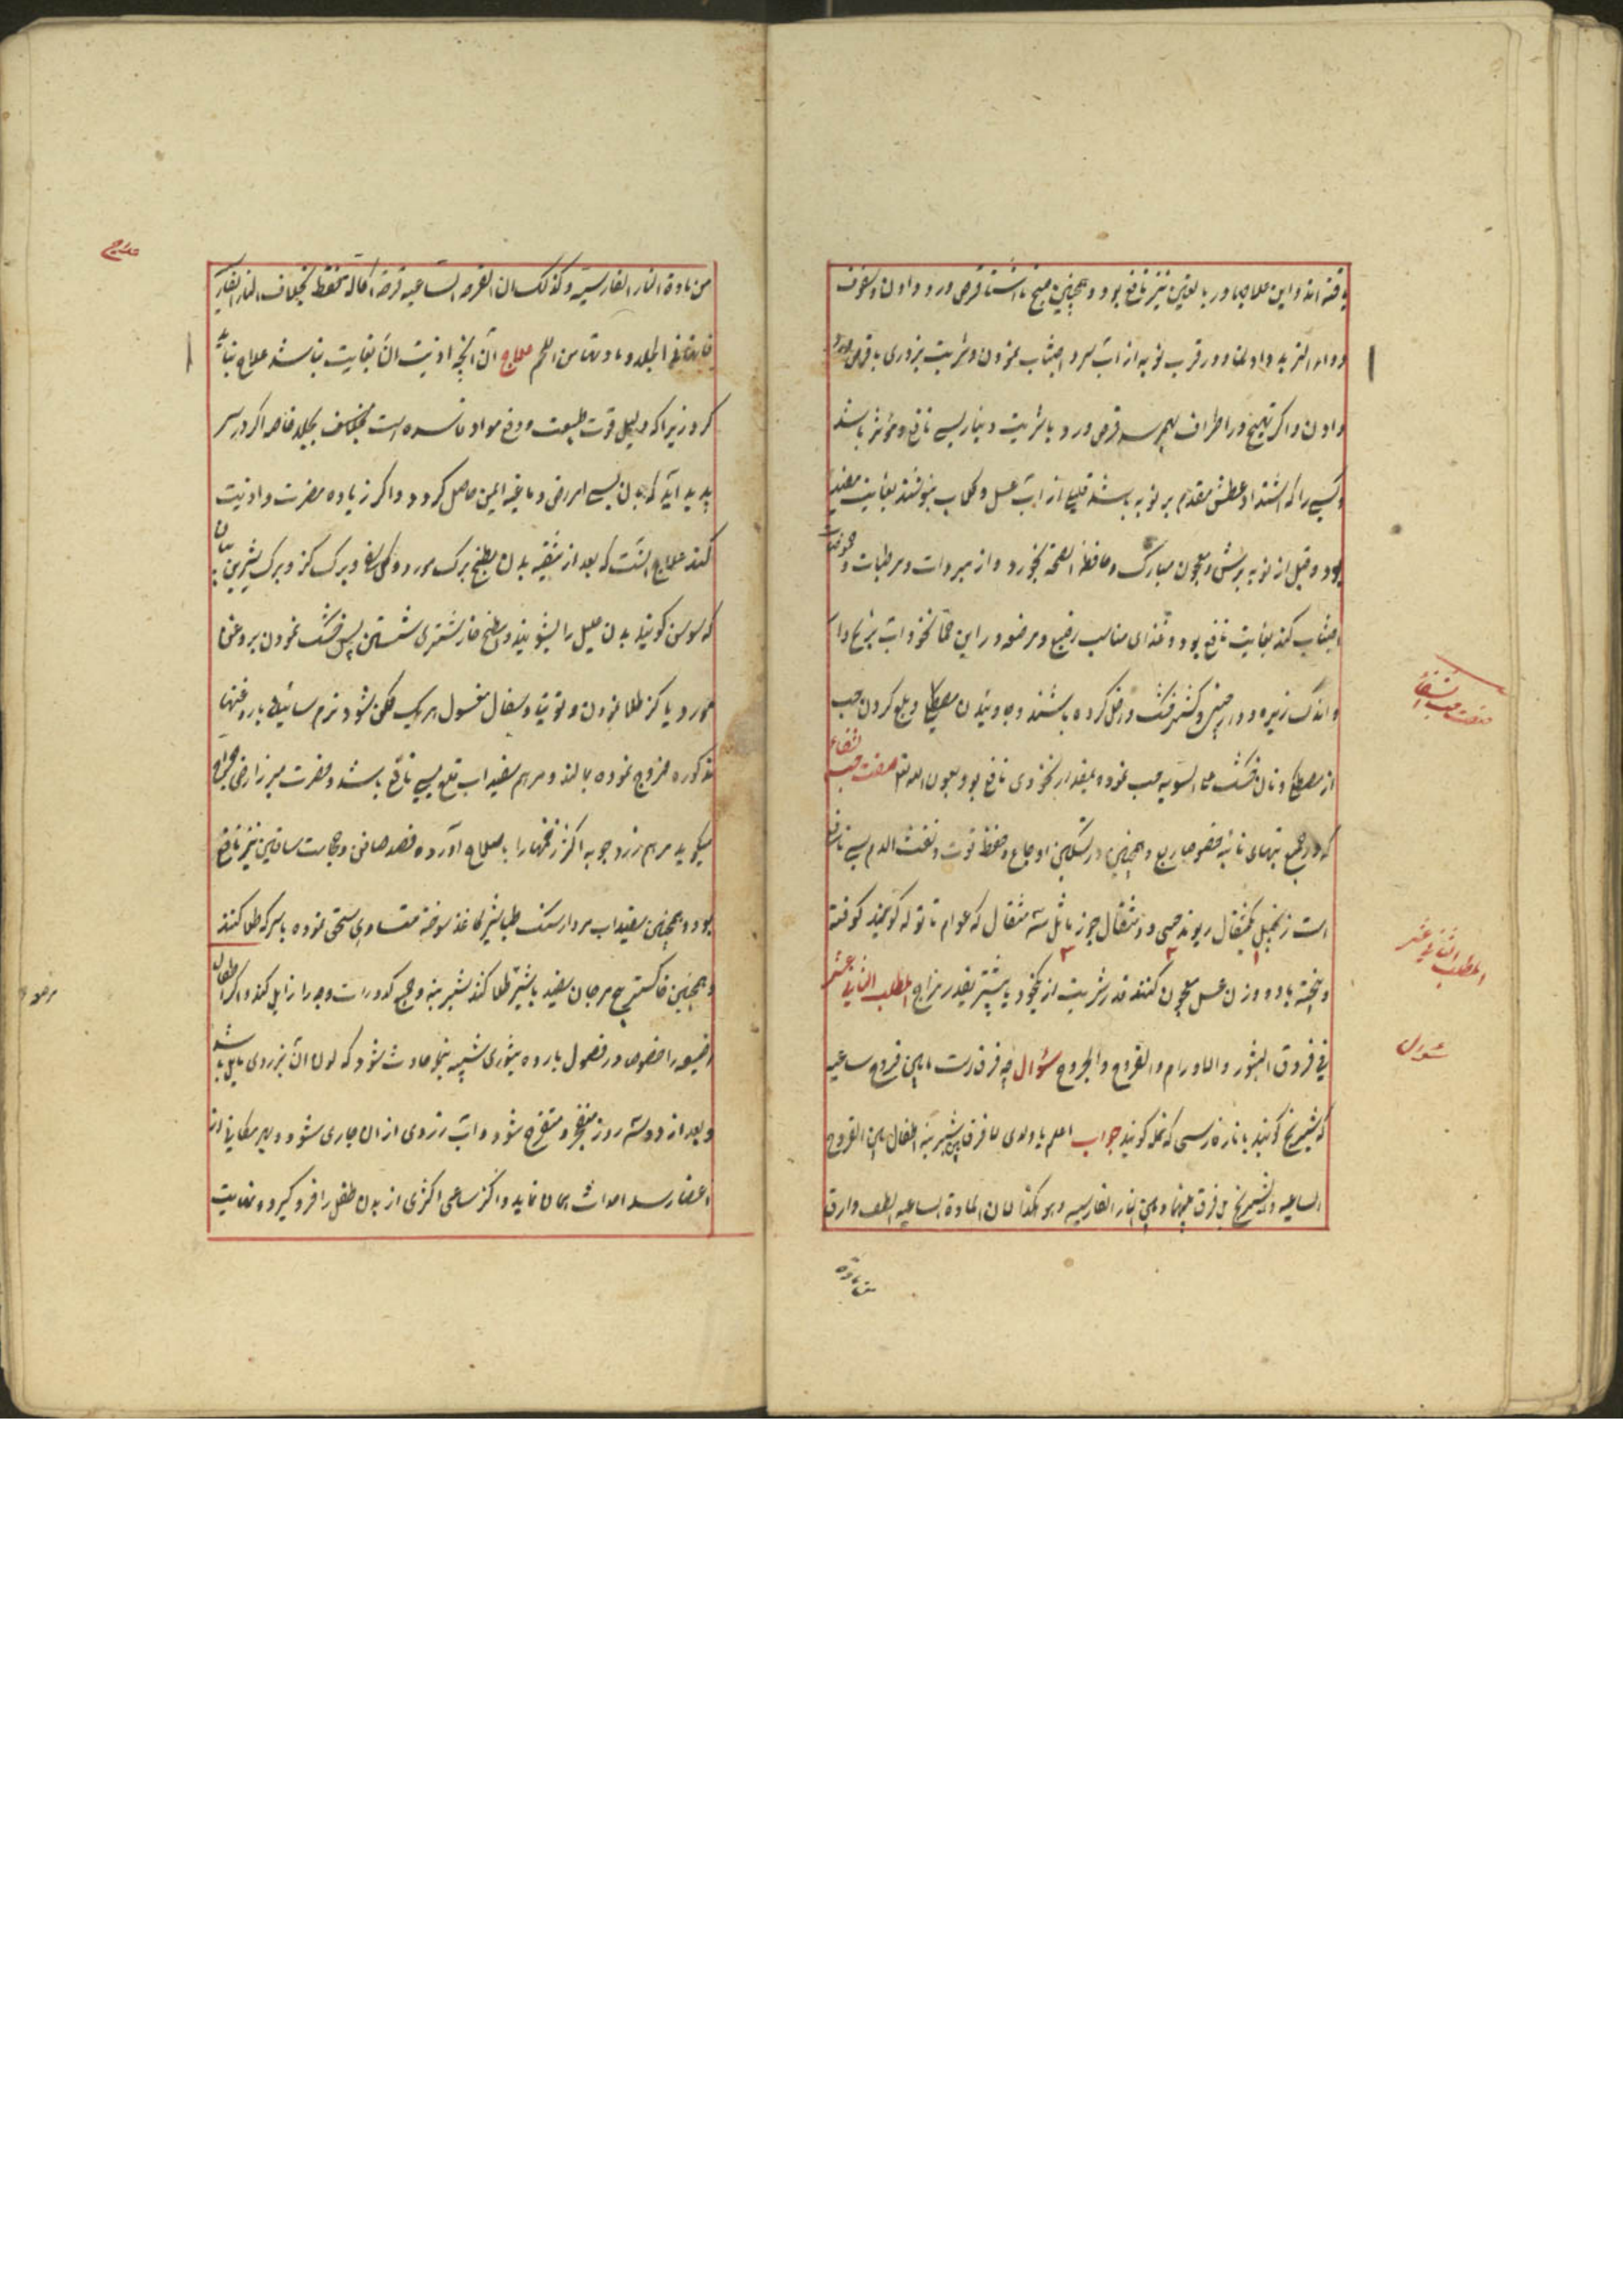 یافته اند و این علاجها در بالغین نیز نافع بود و همچنین صبح ناشتا قرص ورد دادن و سفوف
دواء التربد دادن و در قرب نوبه از آب سرد اجتناب نمودن و شربت بزوری با قرص ورد
دادن و اگر تهیج در اطراف بهم رسد قرص ورد با شربت دیناری بسی نافع و مؤثر باشد
و کسی را که اشتداد عطش مقدم بر نوبه باشد قلیلی از آب عسل و گلاب بنوشند بغایت مفید
بود و قبل از نوبه برشعثا و معجون مبارک و حافظ الصحة بخورد و از مبردات و مرطبات و حموضات
اجتناب کند بغایت نافع بود و غذای مناسب رضیع و مرضعه در این حمی نخود آب برنج دار
و اندک زیره و دارچینی و کشنیز خشک داخل کرده باشند و جاویدن مصطکی و بلع کردن حب
از مصطکی و نان خشک علی السویه حب نموده بمقدار نخودی نافع بود بعون الله تعالی صفت حب الشفاء
که در جمیع تبهای نائبه خصوصا ربع و همچنین در تسکین اوجاع و حفظ قوت و نفث الدم بسی نافع
است زنجبیل یکمثقال ریوند چینی دو مثقال جوز ماثل سه مثقال که عوام تاتوله گویند کوفته
و بیخته با دو وزن عسل معجون کنند قدر شربت از نخود تا بیشتر بقدر مزاج المطلب الثانی عشر
فی فروق البثور و الاورام و القروح و الجروح سؤال چه فرقست مابین قروح ساعیه
که شیرینج گویند با نار فارسی که نمله گویند جواب اعلم یا ولدی لا فرق بین شیرینه اطفال بین القروح
الساعیة و الشیرینج بل فرق بینهما و بین النار الفارسیه و هو هکذا لان المادة الساعیه الطف و ارق
صفت حب الشفاء
المطلب الثانی عشر
سؤال
من مادة
من مادة النار الفارسیه و کذلک ان القرحه الساعیه قرحة اکالة فقط بخلاف النار الفارسی
علاج آن آنچه اذیت آن بغایت نباشد علاج نباید
کرد زیرا که دلیل قوت طبیعت و دفع مواد فاسده است بجلد خاصه اگر در سر
پدید آید که بدان بسی امراض دماغیه ایمنی حاصل گردد و اگر زیاده مضرت و اذیت
کند علاج آنست که بعد از تنقیه بدن بطبخ برک مورد و گل سرخ و برک کز و برک شیرین بیان
که سوس گویند بدن علیل را بشویند و بطبخ خار شتری شستن پس خشک نمودن بروغن
مورد یا کز طلا نمودن و توتیا و سفال مغسول هر یک ممکن شود نرم سائیده با روغنهای
مذکوره ممزوج نموده بمالند و مرهم سفیداب قلع بسی نافع باشد و حضرت میرزا رضی جراح
میگوید مرهم زرد چوبه اکثر زخمها را باصلاح آورده فصد صافن و حجامت ساقین نیز نافع
بود و همچنین سفیداب مردارسنک طباشیر کاغذ سوخته مساوی سحق نموده با سرکه طلا کنند
و همچنین خاکستر مرجان سفید با شیر طلا کند شیرینه و جمیع کدورات وجه را زایل کند و اکثر اطفال
رضیعه را خصوص در فصول بارده بثوری شبیه حادث شود که لون آن بزردی مایل باشد
و بعد از دو سه روز منفجر و متقرح شود و آب زردی از آن جاری شود و بهر مکانی از
اعضا رسد احداث بمان نماید و اکثر ساعی اکثری از بدن طفل را فرو گیرد و نهایت
علاج
مرض